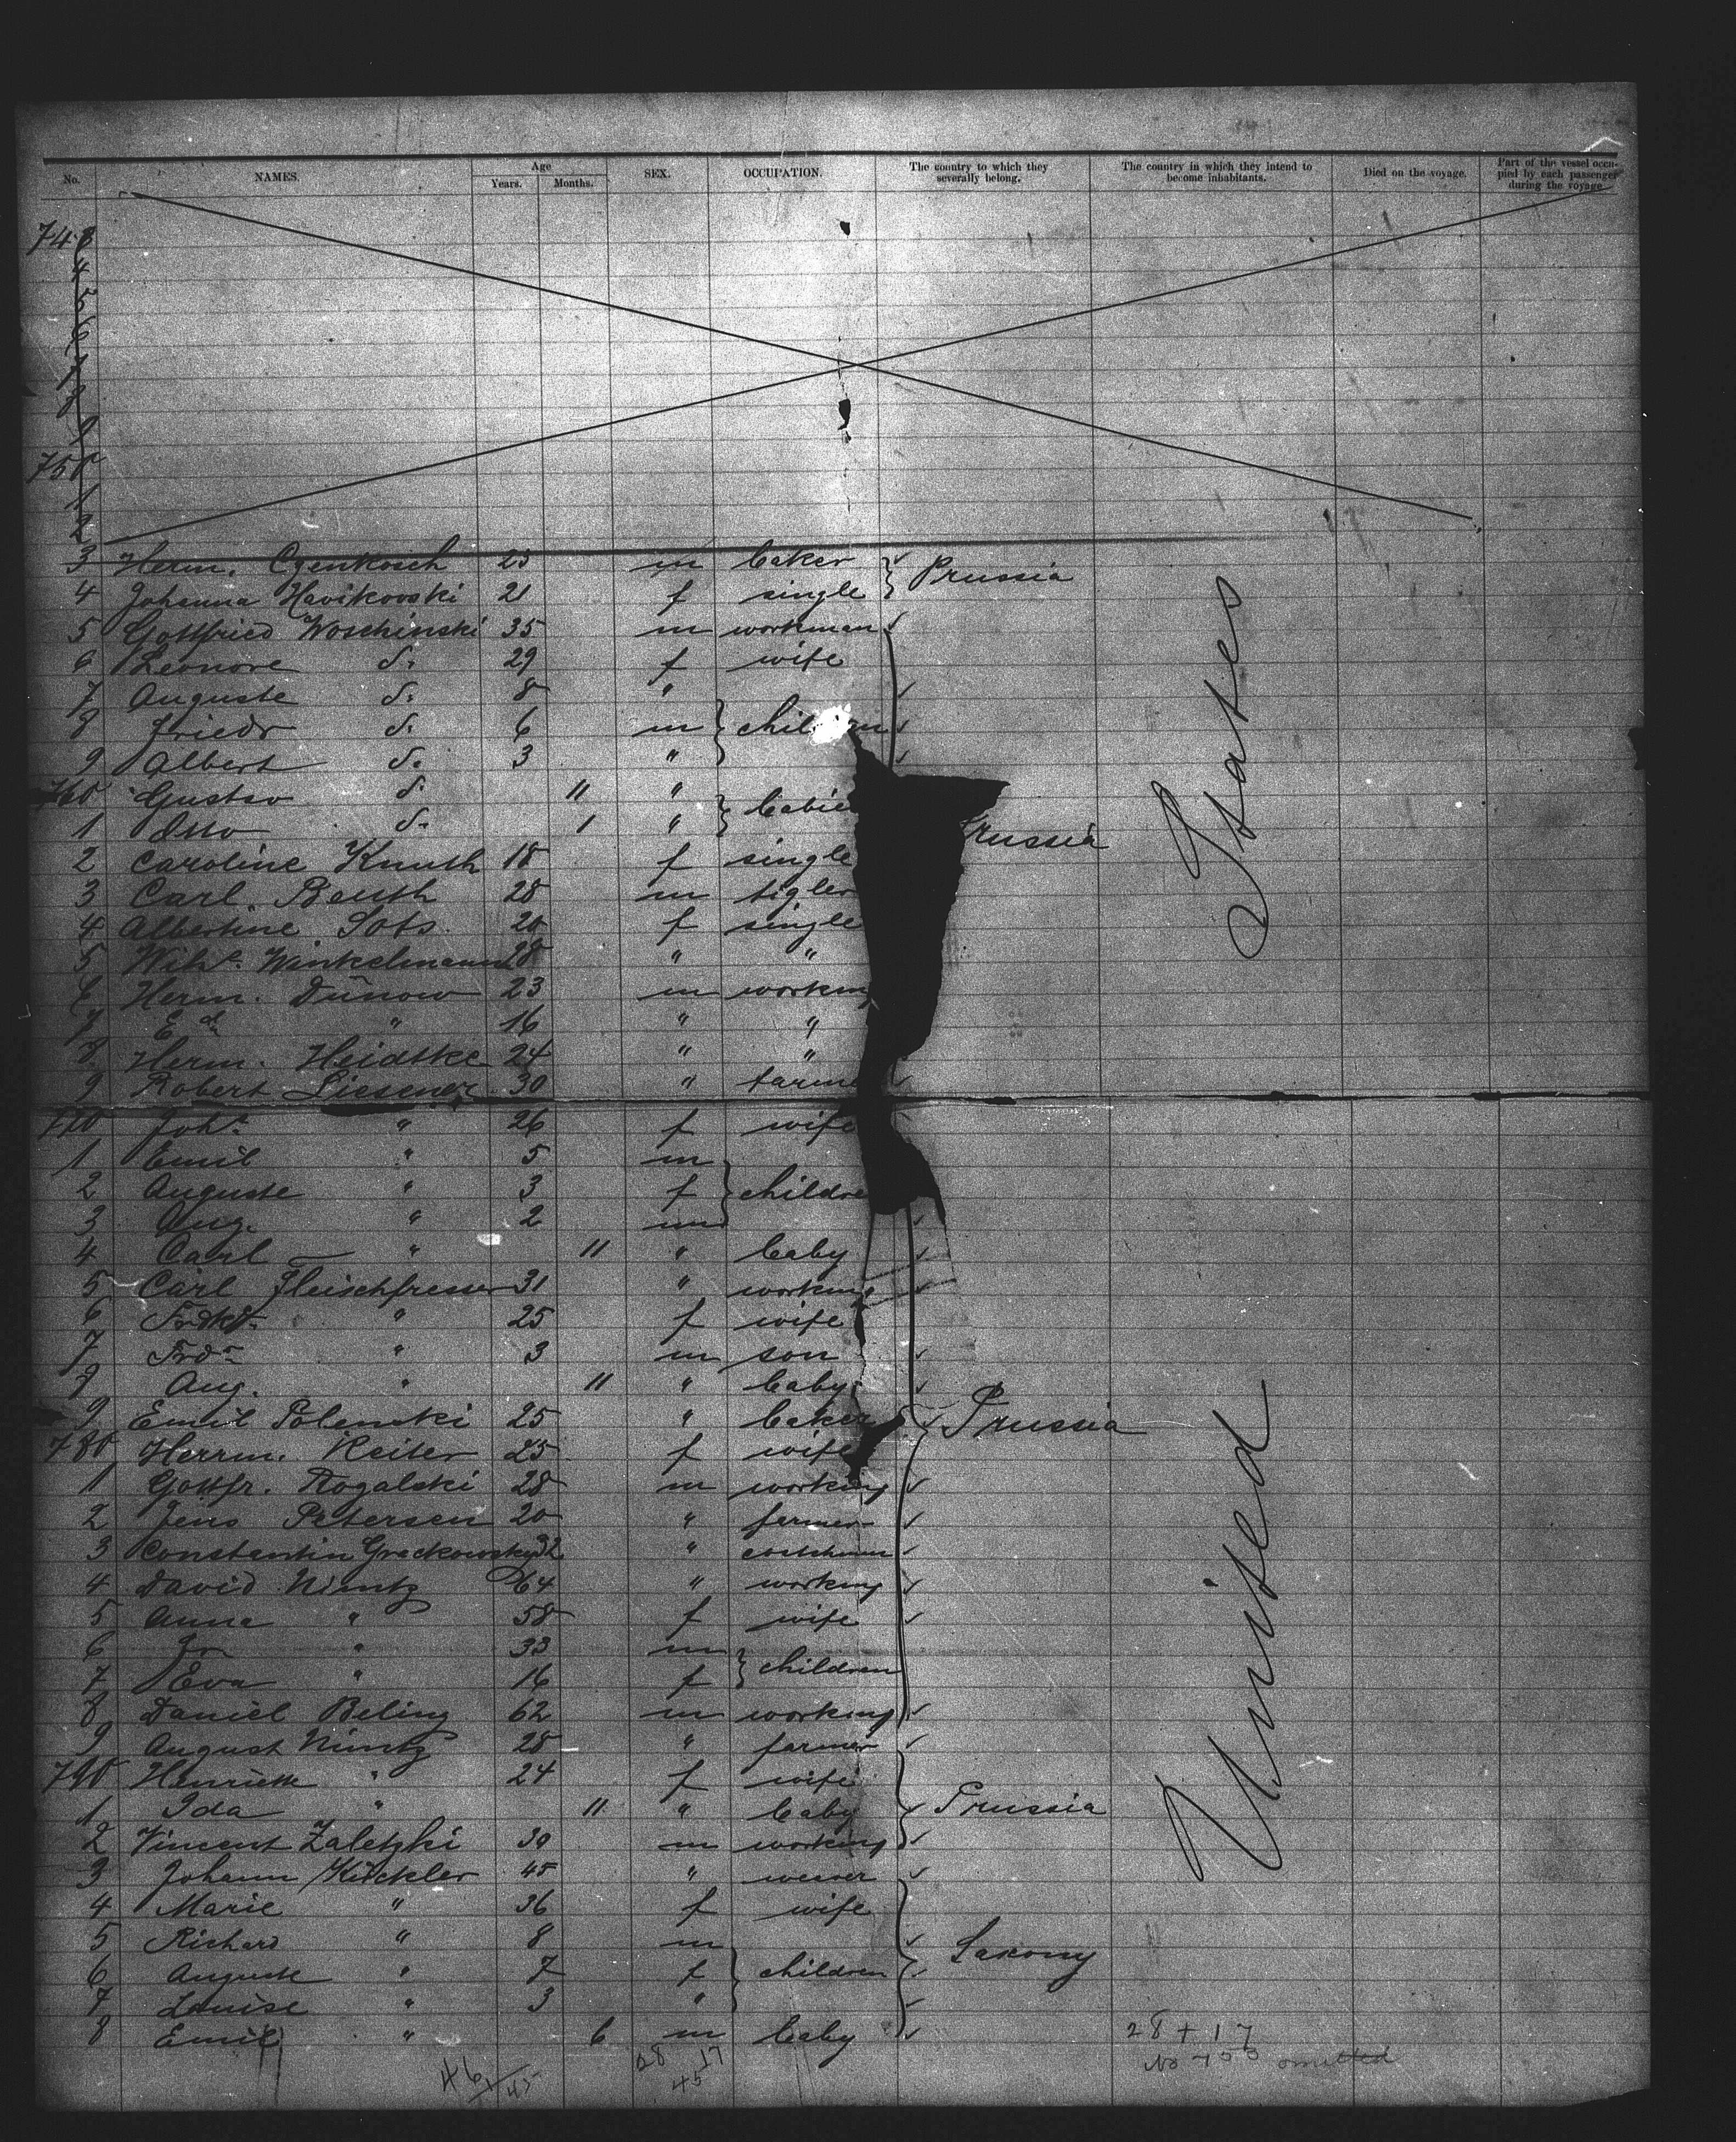 No. NAMES. Age Years. Months. SEX. OCCUPATION. The country to which they severally belong. The country in which they intend to become inhabitants. Died on the voyage. Part of the vessel occupied by each passenger during the voyage
743
4
5
6
7
8
9
750
1
2
3 Herm. 25 m baker Prussia
4 Johanna Havikovski 21 f single
5 Gottfried Woschinski 35 m workman
6 Leonore d. 29 f wife
7 Auguste d. 8 "
8 Friedr d. 6 m children
9 Albert d. 3 "
760 Gustav d. 11 "
1 Otto d. 1 " babie
2 Caroline Knuth 18 f single Prussia
3 Carl. Bauth 28 m
4 Albertine Sots 20 f single
5 Wilh. Winkelmann 28 " "
6 Herm. Dünow 23 m working
7 Ed " 16 " "
8 Herm. Heidtke 24 " "
9 Robert Liesener 30 " farme
770 Joh. " 26 f wife
1 Emil " 5 m
2 Auguste " 3 f childre
3 Aug. " 2 m
4 Carl " 11 " baby
5 Carl Fleischfresser 31 " working
6 " 25 f wife
7 Frdr " 3 m son
8 Aug. " 11 " baby
9 Emil Polenski 25 " baker Prussia
780 Herrm. Reiter 25 f wife
1 Gottfr. Rogalski 28 m working
2 Jens Petersen 20 " farmer
3 Constantin Grackowsky 32 "
4 David Nimtz 64 " working
5 Anna " 58 f wife
6 " 33 m
7 Eva " 16 f children
8 Daniel Beling 62 m working
9 August Nimtz 28 " farmer
790 Henriette " 24 f wife
1 Ida " 11 " baby Prussia
2 Vincent Zaletzki 30 m working
3 Johann Kückler 45 " weaver
4 Marie " 36 f wife
5 Richard " 8 m
6 Auguste " 7 f children Saxony
7 Louise " 3 "
8 Emil " 6 m baby
United States
28 + 17
No 753 omitted
46/45
28 17
45